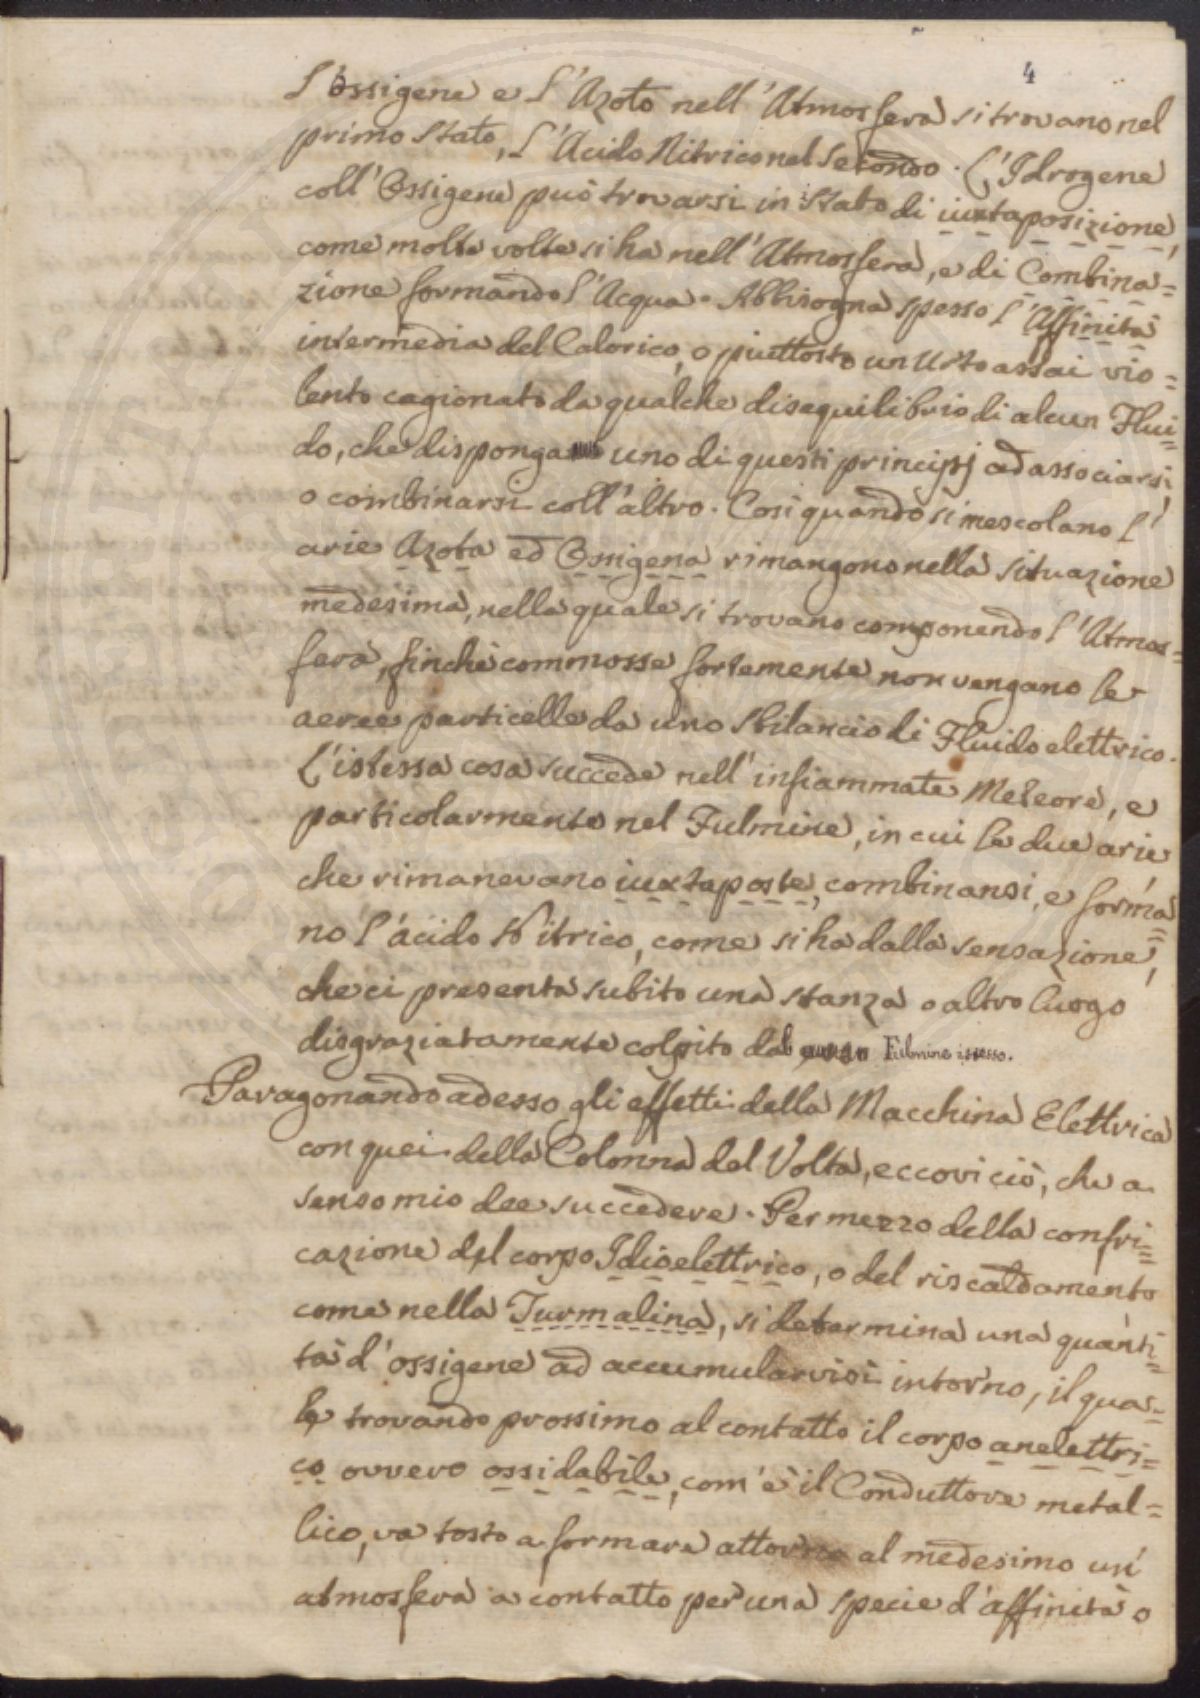 4
L'Ossigene e l'Azoto nell'Atmosfera si trovano nel
primo stato, l'Acido Nitrico nel secondo. L'Idrogene
coll'Ossigene può trovarsi in istato di iuxtaposizione,
come molte volte si ha nell'Atmosfera, e di Combina=
zione formando l'Acqua. Abbisogna spesso l'Affinità
intermedia del Calorico, o piuttosto un Urto assai vio=
lento cagionato da qualche disequilibrio di alcun Flui=
do, che disponga uno di questi principj ad associarsi,
o combinarsi coll'altro. Così quando si mescolano l'
arie Azota ed Ossigena rimangono nella situazione
medesima, nella quale si trovano componendo l'Atmos=
fera, finchè commosse fortemente non vengano le
aeree particelle da uno sbilancio di Fluido elettrico.
L'istessa cosa succede nell'infiammate Meteore, e
particolarmente nel Fulmine, in cui le due arie
che rimanevano iuxtaposte, combinansi, e forma=
no l'ácido Nitrico, come si ha dalla sensazione,
che ci presenta subito una stanza o altro luogo
disgraziatamente colpito dal Fulmine istesso.
Paragonando adesso gli effetti della Macchina Elettrica
con quei della Colonna del Volta, eccovi ciò, che a
senso mio dee succedere. Per mezzo della confri=
cazione del corpo Idioelettrico, o del riscaldamento
come nella Turmalina, si determina una quanti=
tà d'ossigene ad accumularvisi intorno, il qua=
le trovando prossimo al contatto il corpo anelettri=
co ovvero ossidabile, com'è il Conduttore metal=
lico, va tosto a formare attorno al medesimo un'
atmosfera a contatto per una specie d'affinità o